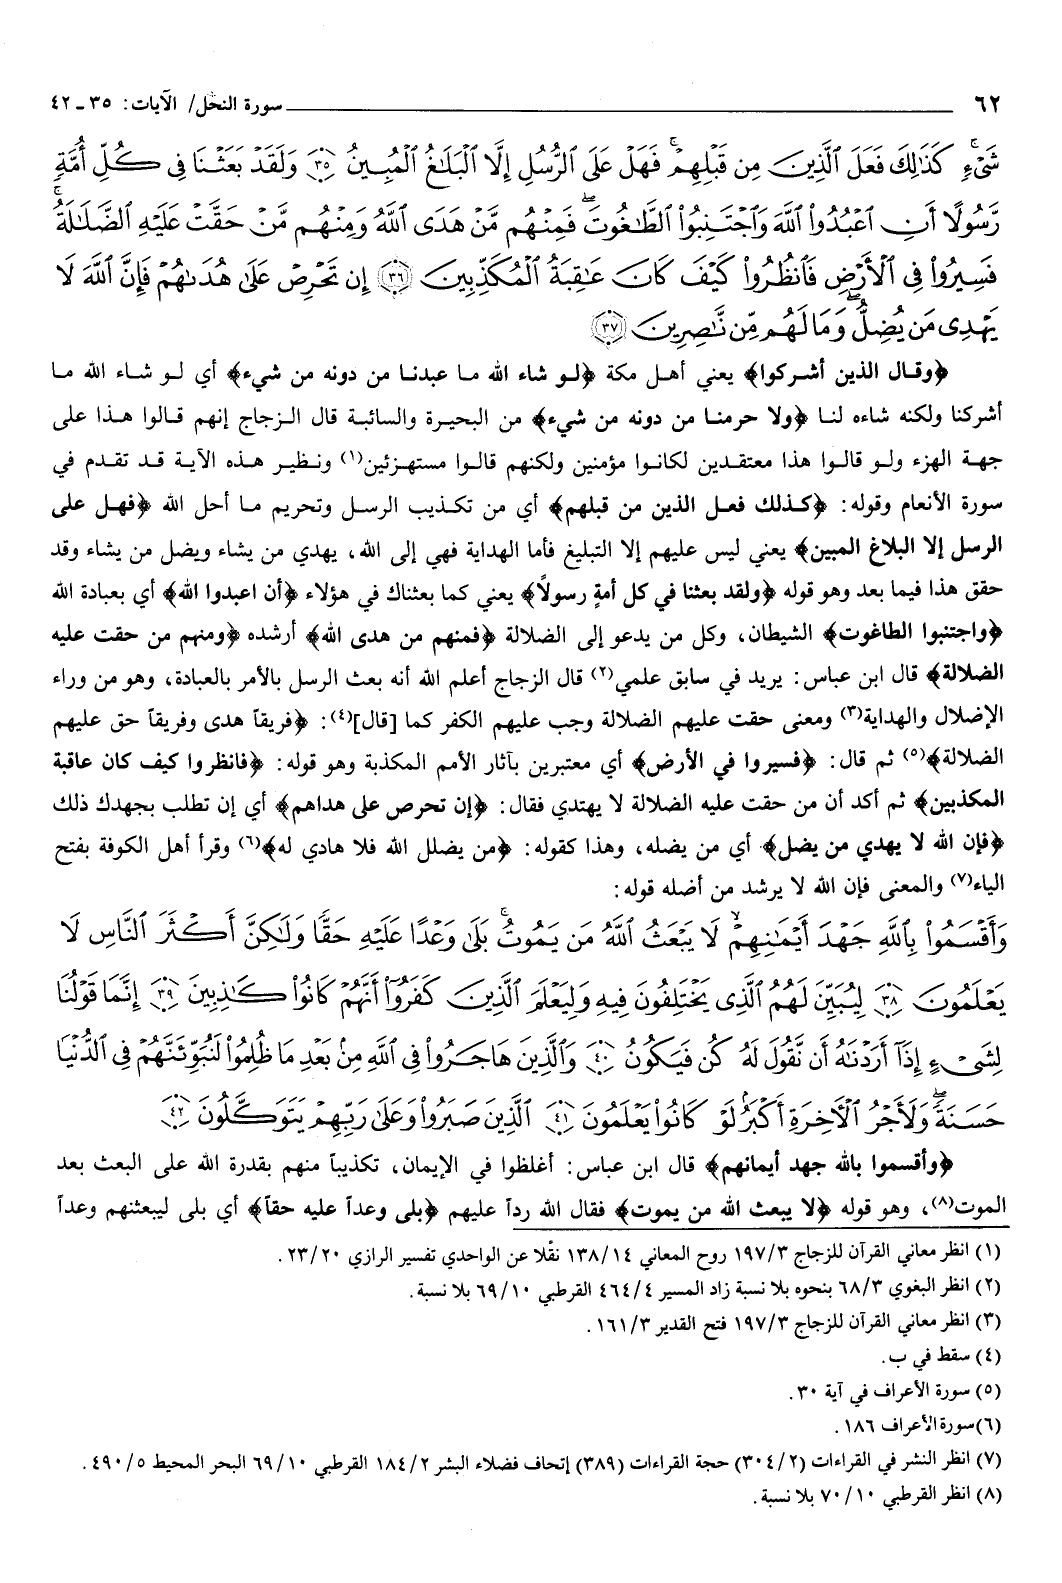 ٦٢ سورة النحل/ الآيات: ٣٥ ـ ٤٢
شَيْءٍ كَذَٰلِكَ فَعَلَ ٱلَّذِينَ مِن قَبْلِهِمْ فَهَلْ عَلَى ٱلرُّسُلِ إِلَّا ٱلْبَلَٰغُ ٱلْمُبِينُ ﴿٣٥﴾ وَلَقَدْ بَعَثْنَا فِى كُلِّ أُمَّةٍ
رَّسُولًا أَنِ ٱعْبُدُوا۟ ٱللَّهَ وَٱجْتَنِبُوا۟ ٱلطَّٰغُوتَ ۖ فَمِنْهُم مَّنْ هَدَى ٱللَّهُ وَمِنْهُم مَّنْ حَقَّتْ عَلَيْهِ ٱلضَّلَٰلَةُ ۚ
فَسِيرُوا۟ فِى ٱلْأَرْضِ فَٱنظُرُوا۟ كَيْفَ كَانَ عَٰقِبَةُ ٱلْمُكَذِّبِينَ ﴿٣٦﴾ إِن تَحْرِصْ عَلَىٰ هُدَىٰهُمْ فَإِنَّ ٱللَّهَ لَا
يَهْدِى مَن يُضِلُّ ۖ وَمَا لَهُم مِّن نَّٰصِرِينَ ﴿٣٧﴾
﴿وقال الذين أشركوا﴾ يعني أهل مكة ﴿لو شاء الله ما عبدنا من دونه من شيء﴾ أي لو شاء الله ما
أشركنا ولكنه شاءه لنا ﴿ولا حرمنا من دونه من شيء﴾ من البحيرة والسائبة قال الزجاج إنهم قالوا هذا على
جهة الهزء ولو قالوا هذا معتقدين لكانوا مؤمنين ولكنهم قالوا مستهزئين(١) ونظير هذه الآية قد تقدم في
سورة الأنعام وقوله: ﴿كذلك فعل الذين من قبلهم﴾ أي من تكذيب الرسل وتحريم ما أحل الله ﴿فهل على
الرسل إلا البلاغ المبين﴾ يعني ليس عليهم إلا التبليغ فأما الهداية فهي إلى الله، يهدي من يشاء ويضل من يشاء وقد
حقق هذا فيما بعد وهو قوله ﴿ولقد بعثنا في كل أمةٍ رسولاً﴾ يعني كما بعثناك في هؤلاء ﴿أن اعبدوا الله﴾ أي بعبادة الله
﴿واجتنبوا الطاغوت﴾ الشيطان، وكل من يدعو إلى الضلالة ﴿فمنهم من هدى الله﴾ أرشده ﴿ومنهم من حقت عليه
الضلالة﴾ قال ابن عباس: يريد في سابق علمي(٢) قال الزجاج أعلم الله أنه بعث الرسل بالأمر بالعبادة، وهو من وراء
الإضلال والهداية(٣) ومعنى حقت عليهم الضلالة وجب عليهم الكفر كما [قال](٤): ﴿فريقاً هدى وفريقاً حق عليهم
الضلالة﴾(٥) ثم قال: ﴿فسيروا في الأرض﴾ أي معتبرين بآثار الأمم المكذبة وهو قوله: ﴿فانظروا كيف كان عاقبة
المكذبين﴾ ثم أكد أن من حقت عليه الضلالة لا يهتدي فقال: ﴿إن تحرص على هداهم﴾ أي إن تطلب بجهدك ذلك
﴿فإن الله لا يهدي من يضل﴾ أي من يضله، وهذا كقوله: ﴿من يضلل الله فلا هادي له﴾(٦) وقرأ أهل الكوفة بفتح
الياء(٧) والمعنى فإن الله لا يرشد من أضله قوله:
وَأَقْسَمُوا۟ بِٱللَّهِ جَهْدَ أَيْمَٰنِهِمْ ۙ لَا يَبْعَثُ ٱللَّهُ مَن يَمُوتُ ۚ بَلَىٰ وَعْدًا عَلَيْهِ حَقًّا وَلَٰكِنَّ أَكْثَرَ ٱلنَّاسِ لَا
يَعْلَمُونَ ﴿٣٨﴾ لِيُبَيِّنَ لَهُمُ ٱلَّذِى يَخْتَلِفُونَ فِيهِ وَلِيَعْلَمَ ٱلَّذِينَ كَفَرُوٓا۟ أَنَّهُمْ كَانُوا۟ كَٰذِبِينَ ﴿٣٩﴾ إِنَّمَا قَوْلُنَا
لِشَىْءٍ إِذَآ أَرَدْنَٰهُ أَن نَّقُولَ لَهُۥ كُن فَيَكُونُ ﴿٤٠﴾ وَٱلَّذِينَ هَاجَرُوا۟ فِى ٱللَّهِ مِنۢ بَعْدِ مَا ظُلِمُوا۟ لَنُبَوِّئَنَّهُمْ فِى ٱلدُّنْيَا
حَسَنَةً ۖ وَلَأَجْرُ ٱلْءَاخِرَةِ أَكْبَرُ لَوْ كَانُوا۟ يَعْلَمُونَ ﴿٤١﴾ ٱلَّذِينَ صَبَرُوا۟ وَعَلَىٰ رَبِّهِمْ يَتَوَكَّلُونَ ﴿٤٢﴾
﴿وأقسموا بالله جهد أيمانهم﴾ قال ابن عباس: أغلظوا في الإيمان، تكذيباً منهم بقدرة الله على البعث بعد
الموت(٨)، وهو قوله ﴿لا يبعث الله من يموت﴾ فقال الله رداً عليهم ﴿بلى وعداً عليه حقاً﴾ أي بلى ليبعثنهم وعداً
(١) انظر معاني القرآن للزجاج ١٩٧/٣ روح المعاني ١٣٨/١٤ نقلا عن الواحدي تفسير الرازي ٢٣/٢٠.
(٢) انظر البغوي ٦٨/٣ بنحوه بلا نسبة زاد المسير ٤٦٤/٤ القرطبي ٦٩/١٠ بلا نسبة.
(٣) انظر معاني القرآن للزجاج ١٩٧/٣ فتح القدير ١٦١/٣.
(٤) سقط في ب.
(٥) سورة الأعراف في آية ٣٠.
(٦) سورة الأعراف ١٨٦.
(٧) انظر النشر في القراءات (٣٠٤/٢) حجة القراءات (٣٨٩) إتحاف فضلاء البشر ١٨٤/٢ القرطبي ٦٩/١٠ البحر المحيط ٤٩٠/٥.
(٨) انظر القرطبي ٧٠/١٠ بلا نسبة.